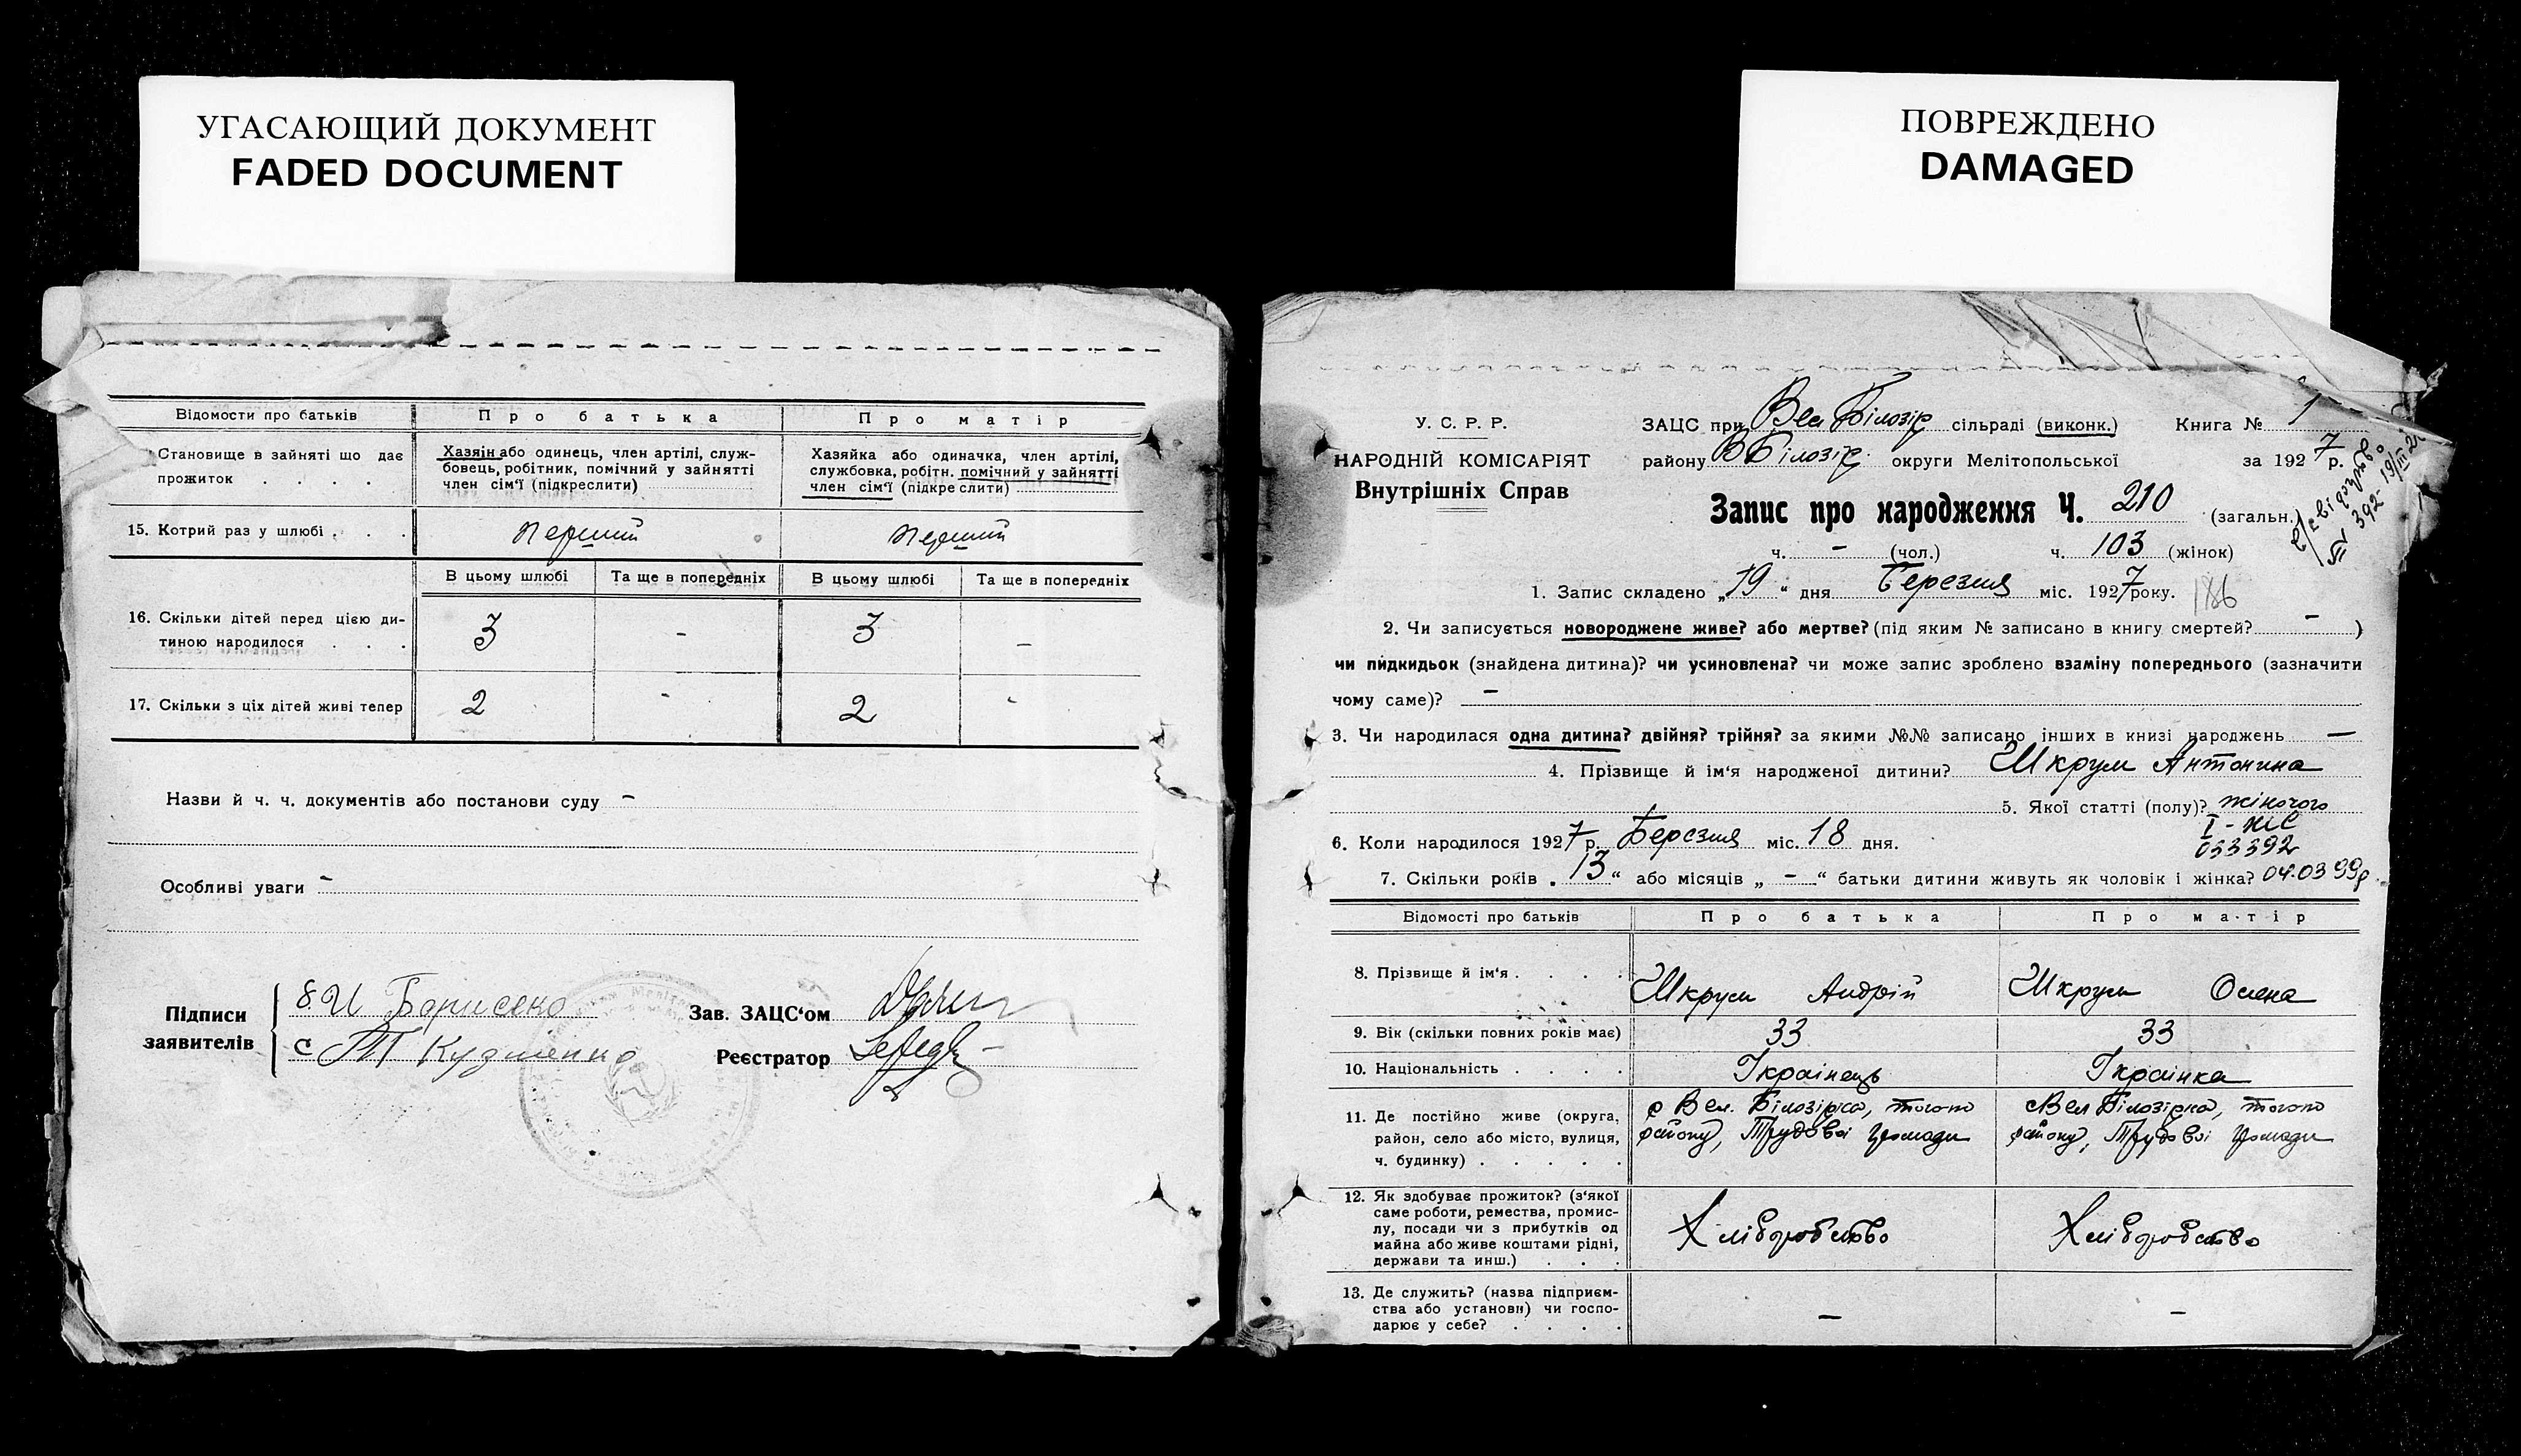 УГАСАЮЩИЙ ДОКУМЕНТ
FADED DOCUMENT
Відомости про батьків
Про батька
Про матір
Становище в зайняті що дає
прожиток . . . .
Хазяін або одинець, член артілі, служ-
бовець, робітник, помічний у зайнятті
член сім'ї (підкреслити)
Хазяйка або одиначка, член артілі,
службовка, робітн. помічний у зайнятті
член сім'ї (підкреслити)
15. Котрий раз у шлюбі . . .
перший
перший
В цьому шлюбі
Та ще в попередніх
В цьому шлюбі
Та ще в попередніх
16. Скільки дітей перед цією ди-
тиною народилося . . .
3
-
3
-
17. Скільки з ціх дітей живі тепер
2
-
2
-
Назви й ч. ч. документів або постанови суду -
Особливі уваги -
Підписи
заявителів
И Борисенко
Кузменко
Зав. ЗАЦС'ом
Реєстратор
ПОВРЕЖДЕНО
DAMAGED
У. С. Р. Р.
НАРОДНІЙ КОМІСАРІЯТ
Внутрішніх Справ
ЗАЦС при Вел Білозір сільраді (виконк.) Книга № 1
району В Білозір. округи Мелітопольської за 1927 р.
Запис про народження Ч. 210 (загальн.)
ч. - (чол.) ч. 103 (жінок)
1. Запис складено „19" дня Березня міс. 1927 року.
186
2. Чи записується новороджене живе? або мертве? (під яким № записано в книгу смертей? - )
чи підкидьок (знайдена дитина)? чи усиновлена? чи може запис зроблено взаміну попереднього (зазначити
чому саме)? -
3. Чи народилася одна дитина? двійня? трійня? за якими №№ записано інших в книзі народжень -
4. Прізвище й ім'я народженої дитини? Шкрум Антонина
5. Якої статті (полу)? жіночого
I - ЖС
033392
04.03 99р.
6. Коли народилося 1927 р. Березня міс. 18 дня.
7. Скільки років „13" або місяців „ - " батьки дитини живуть як чоловік і жінка?
Відомості про батьків
Про батька
Про матір
8. Прізвище й ім'я . . . .
Шкрум Андрій
Шкрум Олена
9. Вік (скільки повних років має)
33
33
10. Національність . . . .
Українець
Українка
11. Де постійно живе (округа,
район, село або місто, вулиця,
ч. будинку) . . . . .
с Вел. Білозірка, того
району, Трудової громади
с Вел Білозірка, того
району, Трудової громади
12. Як здобуває прожиток? (з'якої
саме роботи, ремества, промис-
лу, посади чи з прибутків од
майна або живе коштами рідні,
держави та инш.) . . .
Хліборобство
Хліборобство
13. Де служить? (назва підприєм-
ства або установи) чи госпо-
дарює у себе? . . . .
-
-